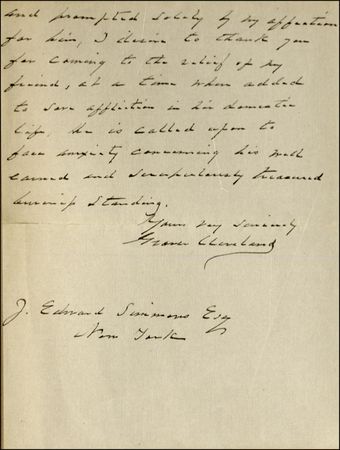 and prompted solely by my affection
for him, I desire to thank you
for coming to the relief of my
friend, at a time when added
to sore affliction in his domestic
life, he is called upon to
face anxiety concerning his well
earned and scrupulously treasured
business standing.
Yours very sincerely
Grover Cleveland
J. Edward Simmons Esq
New York